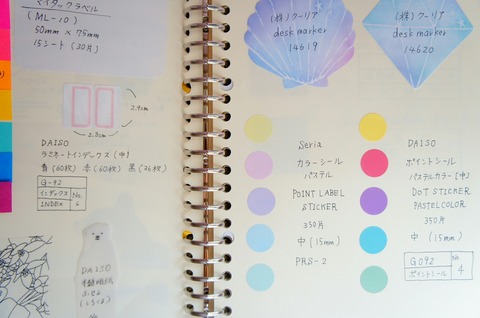 マイタックラベル
(ML-10)
50mm × 75mm
15シート (30片)
2.9cm
2.3cm
DAISO
ラミネートインデックス (中)
青 (60枚) 赤 (60枚) 黒 (36枚)
G-92
インデックス
INDEX
No.
6
DAISO
ふせん
(しろくま)
No
(株) クーリア
desk marker
14619
(株) クーリア
desk marker
14620
Seria
カラーシール
パステル
POINT LABEL
STICKER
350片
中 (15mm)
PRS-2
DAISO
ポイントシール
パステルカラー [中]
DOT STICKER
PASTELCOLOR
350片
中 (15mm)
G092
ポイントシール
No.
4